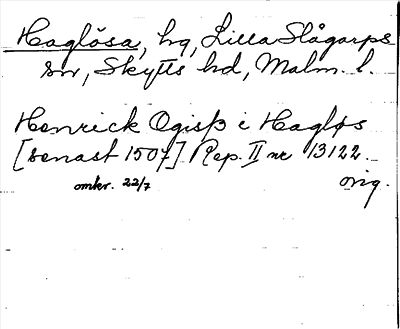 Haglösa, hg, Lilla Slågarps
sn, Skytts hd, Malm. l.
Henrick Ogisß i Hagløs
[senast 1507] Rep. II nr 13122.
omkr. 22/7 orig.